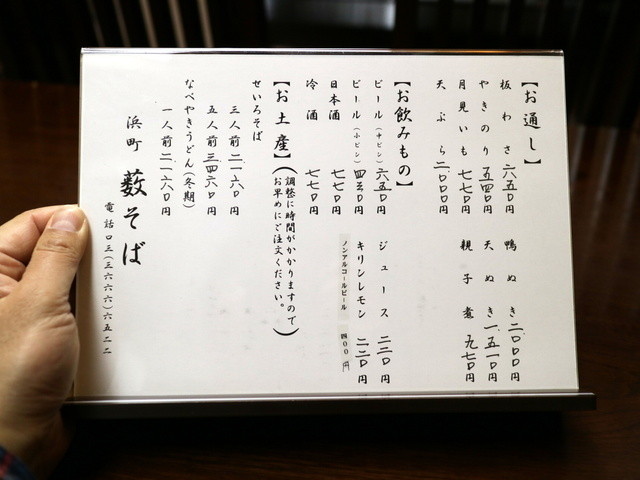 【お通し】
板わさ 六五〇円
やきのり 五四〇円
月見いも 七七〇円
天ぷら 二〇〇〇円
鴨ぬき 二〇〇〇円
天ぬき 一、五一〇円
親子煮 九七〇円
【お飲みもの】
ビール(中ビン) 六五〇円
ビール(小ビン) 四五〇円
日本酒 七七〇円
冷酒 七七〇円
ジュース 二二〇円
キリンレモン 二二〇円
ノンアルコールビール 四00円
【お土産】(調整に時間がかかりますので
お早めにご注文ください。)
せいろそば
三人前 二一六〇円
五人前 三四六〇円
なべやきうどん(冬期)
一人前 二一六〇円
浜町 藪そば
電話〇三(三六六六)六五二二